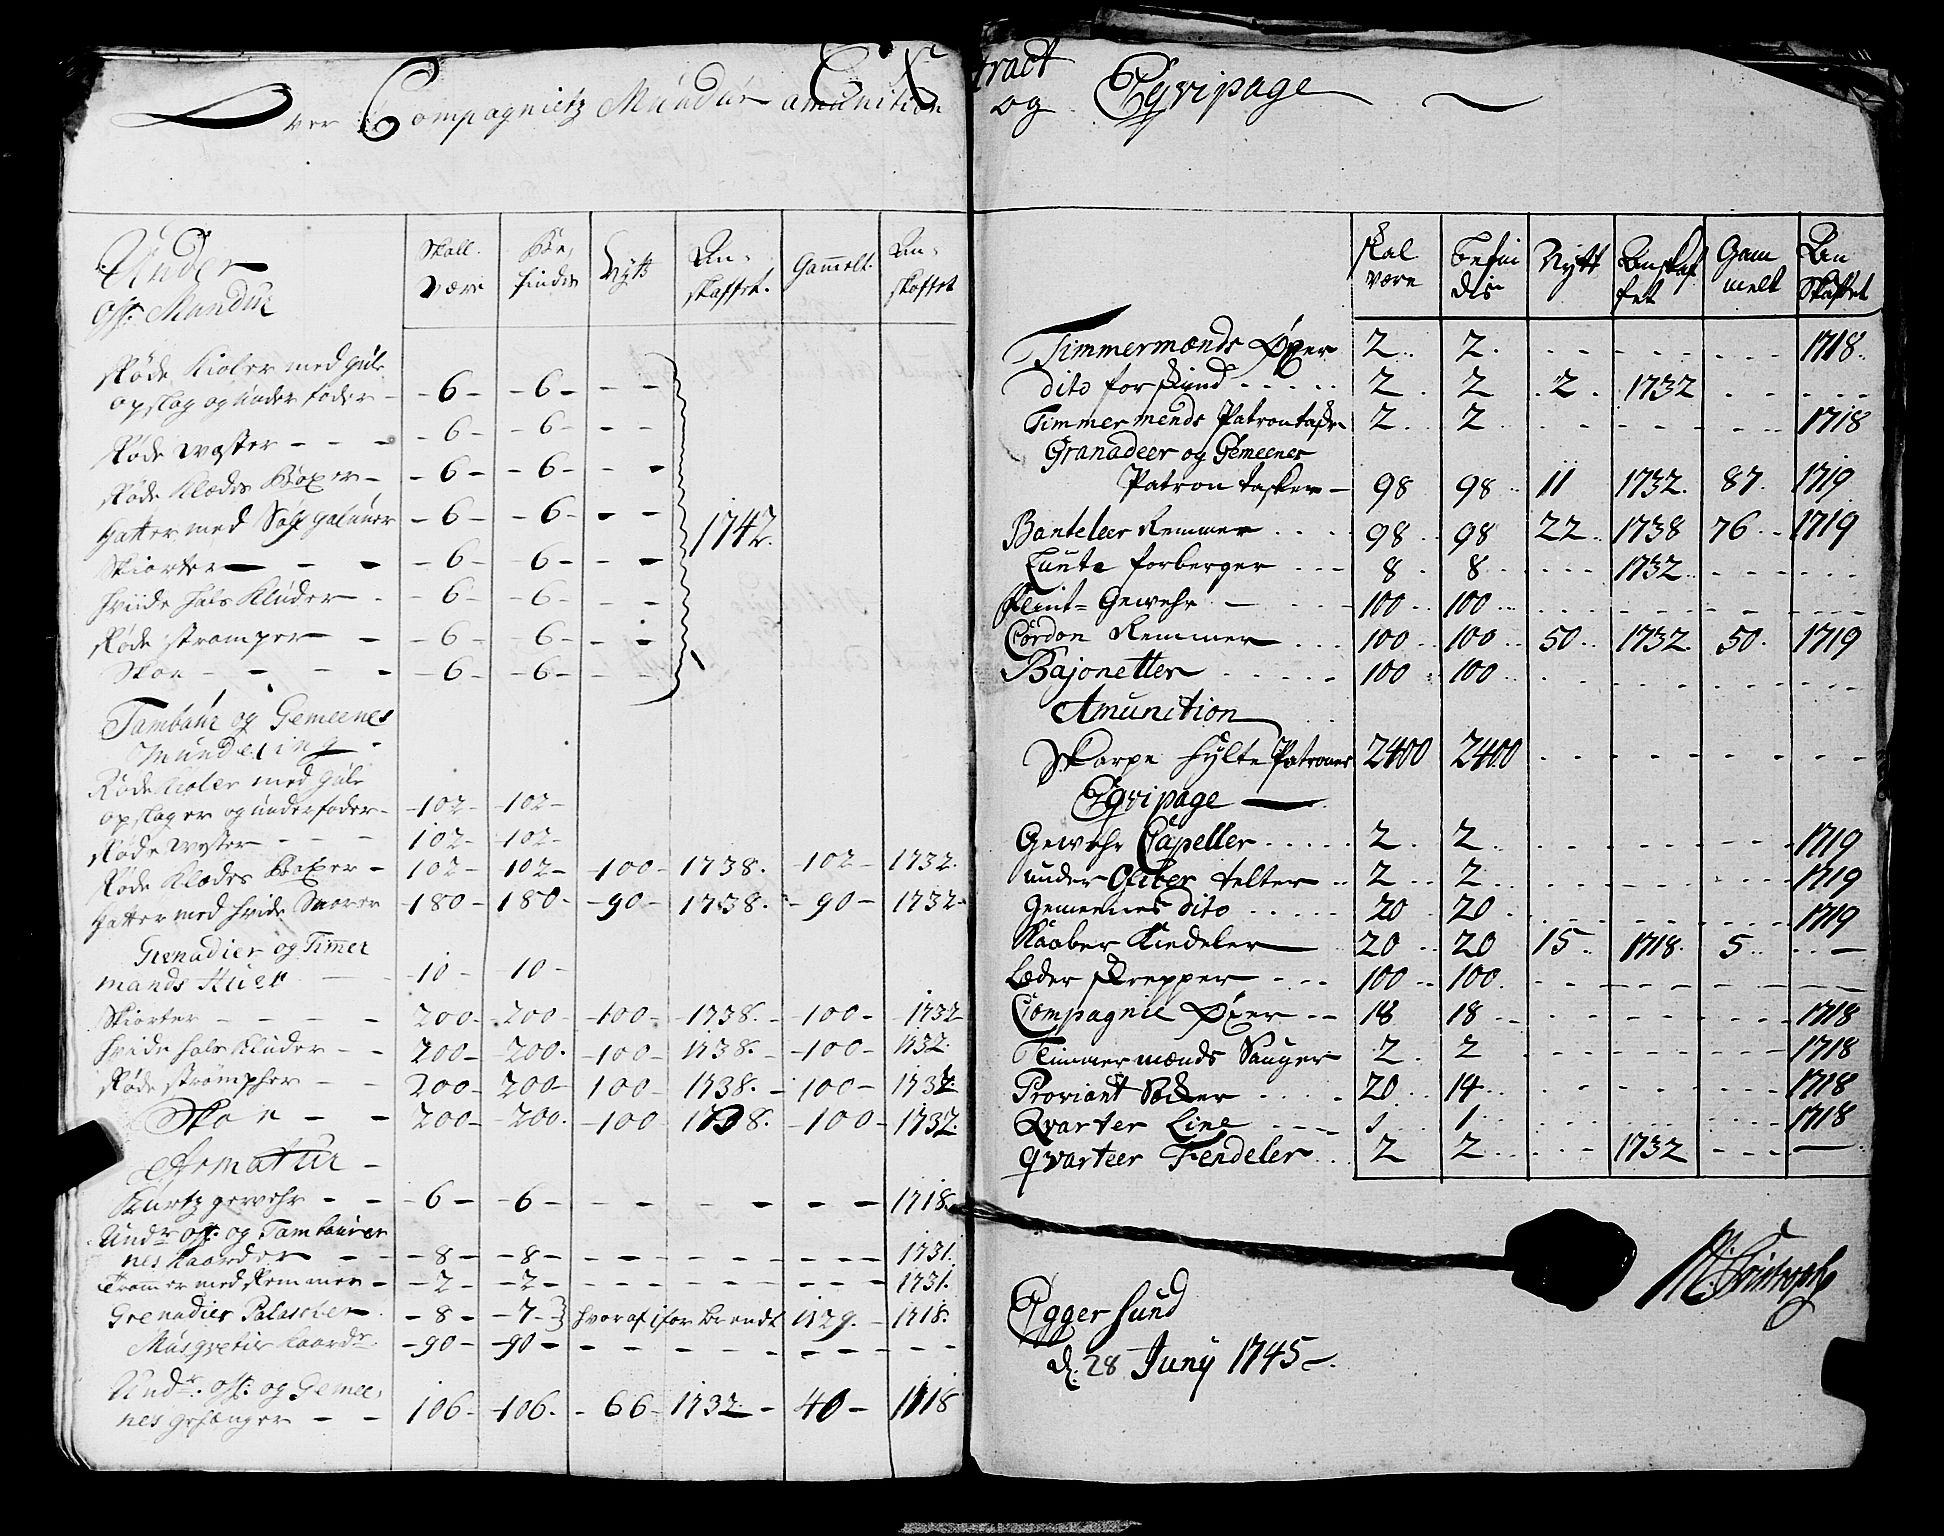 Extract
Over Compagnietz Mundur amunition og Eqvipage
Under
Off: Mundur
Skall være
Be, findes
Nytt
An- skaffet.
Gamelt.
An- skaffet
Røde Kioler med gule
opslag og under foder - 6 - 6 - -
Røde wester - - - 6 - 6 - -
Røde Klædes Boxer - 6 - 6 - -
Hatter med galuner - 6 - 6 - - 1742.
Skiorter - - - 6 - 6 - -
Hviide hals Klüder - 6 - 6 - -
Røde strømper - - 6 - 6 - -
Skoe - - - - 6 - 6 - -
Tambour og Gemeenes
Mundering -
Røde Kioler med gule
opslager og underfoder - 102 - 102 -
Røde wester - - - 102 - 102 -
Røde Klædes Boxer - 102 - 102 - 100 - 1738. - 102 - 1732.
Hatter med hvide Snorer - 180 - 180 - 90 - 1738. - 90 - 1732 -
Grenadier og Timer
mands Huer - - 10 - 10 -
Skiorter - - - - 200 - 200 - 100 - 1738. - 100 - 1732
Hvide hals Klüder - - 200 - 200. - 100 - 1738. - 100 - 1732.
Røde strømpher - - 200 - 200 - 100 - 1738. - 100 - 1732.
Skoe - - 200 - 200. - 100 - 1738. - 100 - 1732.
Armatur -
Kurtz gewehr - - 6 - 6 - - - - - - 1718.
Undr off: og Tambourer
nes Kaarder - - 8 - 8 - - - - - - 1731.
Trommer med Remmer - 2 - 2 - - - - - - 1731.
Grenadier Palascher. - 8 - 7 - hvoraf i for brendt 1729. - 1718.
Musqvetir Kaardr. - 90 - 90 - - - - - - -
Undr. off: og Gemee,
nes gehænger - - 106 - 106. - 66 - 1732. - 40 - 1718
skal være
befin des
Nytt
Anskaf fet
Gam melt
An Skaffet
Timmermænds Øxer 2.. 2. - - - - - - 1718..
dito forskind ..... 2. 2 .2. 1732 . . . . .
Timmermends Patrontaske 2. 2 - - - - - - 1718
Granadeer og Gemeenes
Patron tasker - 98 98 .. 11 1732. 87. 1719
Banteleer Remmer .... 98.. 98 22.. 1738 76.. 1719
Lunte forberger ... 8. 8.. - - - 1732.. - - - -
Flint= Gewehr - ... 100.. 100... - - - - - -
Cordon Remmer ... 100.. 100.. 50.. 1732. 50. 1719
Bajonetter ...... 100.. 100. - - - - - -
Amunition
Skarpe hylte Patroner 2400 2400 - - - - - -
Eqvipage
Gewehr Capeller ..... 2. 2. - - - - - - 1719
under Oficer telter .. 2.. 2.. - - - - - - 1719
Gemeenes dito ..... 20. 20. - - - - - - 1719
Kaaber Kiedeler 20.. 20 15. 1718. 5.. -
Læder skrepper - .... 100.. 100. - - - - - -
Compagnie Øxer - - 18 18.. - - - - - 1718
Timmermænds Sauger 2. 2 - - - - - - 1718
Proviant Sæcker .... 20.. 14.. - - - - - 1718
Qvarter Line - - - 1. 1.. - - - - - 1718
Qvarteer Fendeler.. 2 2.. - - - 1732 - - - -
Egger sund
d. 28 Juny 1745.